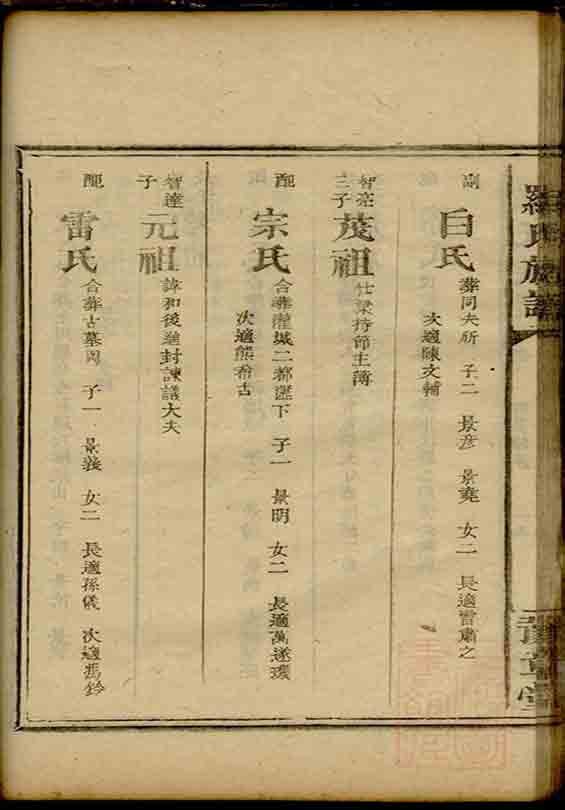 羅氏族譜
豫章堂
副 白氏 葬同夫所 子二 景彦 景堯 女二 長適雷肅之
次適陳文輔
智亮三子 茂祖 仕梁持節主簿
配 宗氏 合葬灌城二都遥下 子一 景明 女二 長適萬遂環
次適熊希古
智達子 元祖 諱和後進封諫議大夫
配 雷氏 合葬古墓岡 子一 景義 女二 長適孫儀 次適馮鈐